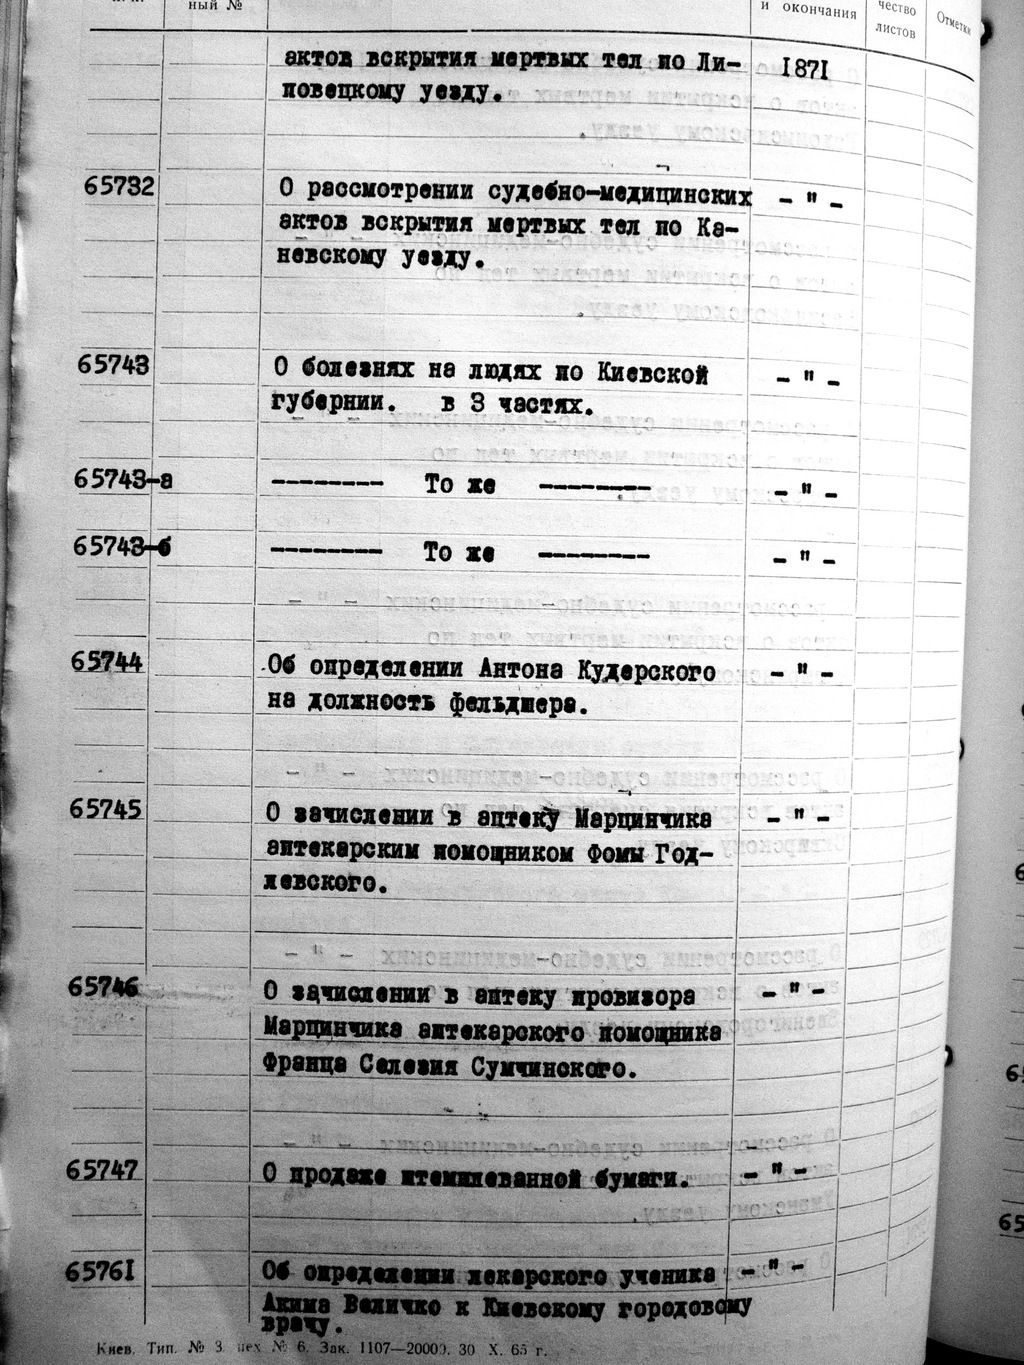 ный № и окончания чество листов Отметки
актов вскрытия мертвых тел по Ли- 1871
повецкому уезду.
65732 О рассмотрении судебно-медицинских - " -
актов вскрытия мертвых тел по Ка-
невскому уезду.
65743 О болезнях на людях по Киевской - " -
губернии. в 3 частях.
65743-а -------- То же -------- - " -
65743-б -------- То же -------- - " -
65744 Об определении Антона Кудерского - " -
на должность фельдшера.
65745 О зачислении в аптеку Марцинчика - " -
аптекарским помощником Фомы Год-
левского.
65746 О зачислении в аптеку провизора - " -
Марцинчика аптекарского помощника
Франца Селезия Сумчинского.
65747 О продаже штемпеванной бумаги. - " -
65761 Об определении лекарского ученика - " -
Акима Величко к Киевскому городовому
врачу.
Киев. Тип. № 3. цех № 6. Зак. 1107—20000. 30 X. 65 г.